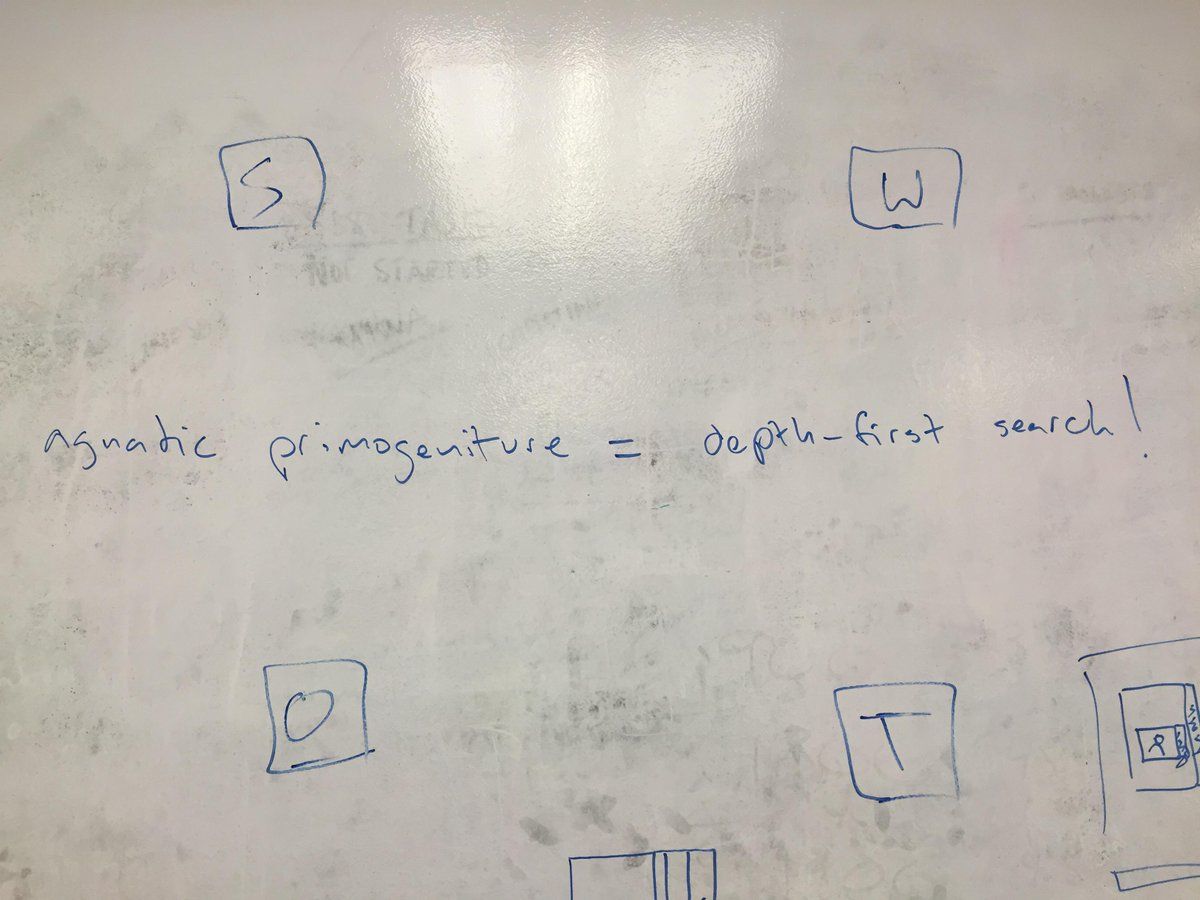 S W
agnatic primogeniture = depth-first search!
O T